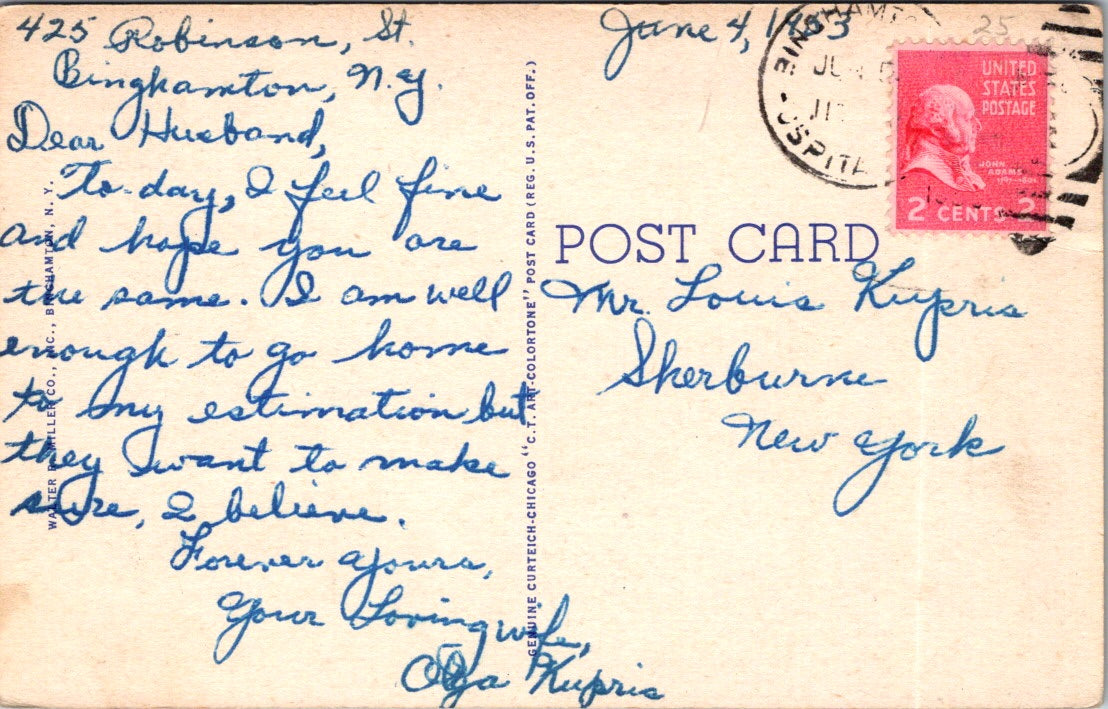 425 Robinson, St.
Binghamton, N.Y.
June 4, 1953
Dear Husband,
To-day, I feel fine
and hope you are
the same. I am well
enough to go home
to my estimation but
they want to make
sure, I believe.
Forever Yours,
Your Loving wife,
Olga Kupris
WALTER R. MILLER CO., INC., BINGHAMTON, N. Y.
GENUINE CURTEICH-CHICAGO "C. T. ART-COLORTONE" POST CARD (REG. U. S. PAT. OFF.)
25
BINGHAMTON
JUN 5
UNITED
STATES
POSTAGE
JOHN
ADAMS
2 CENTS 2
POST CARD
Mr. Louis Kupris
Sherburne
New York